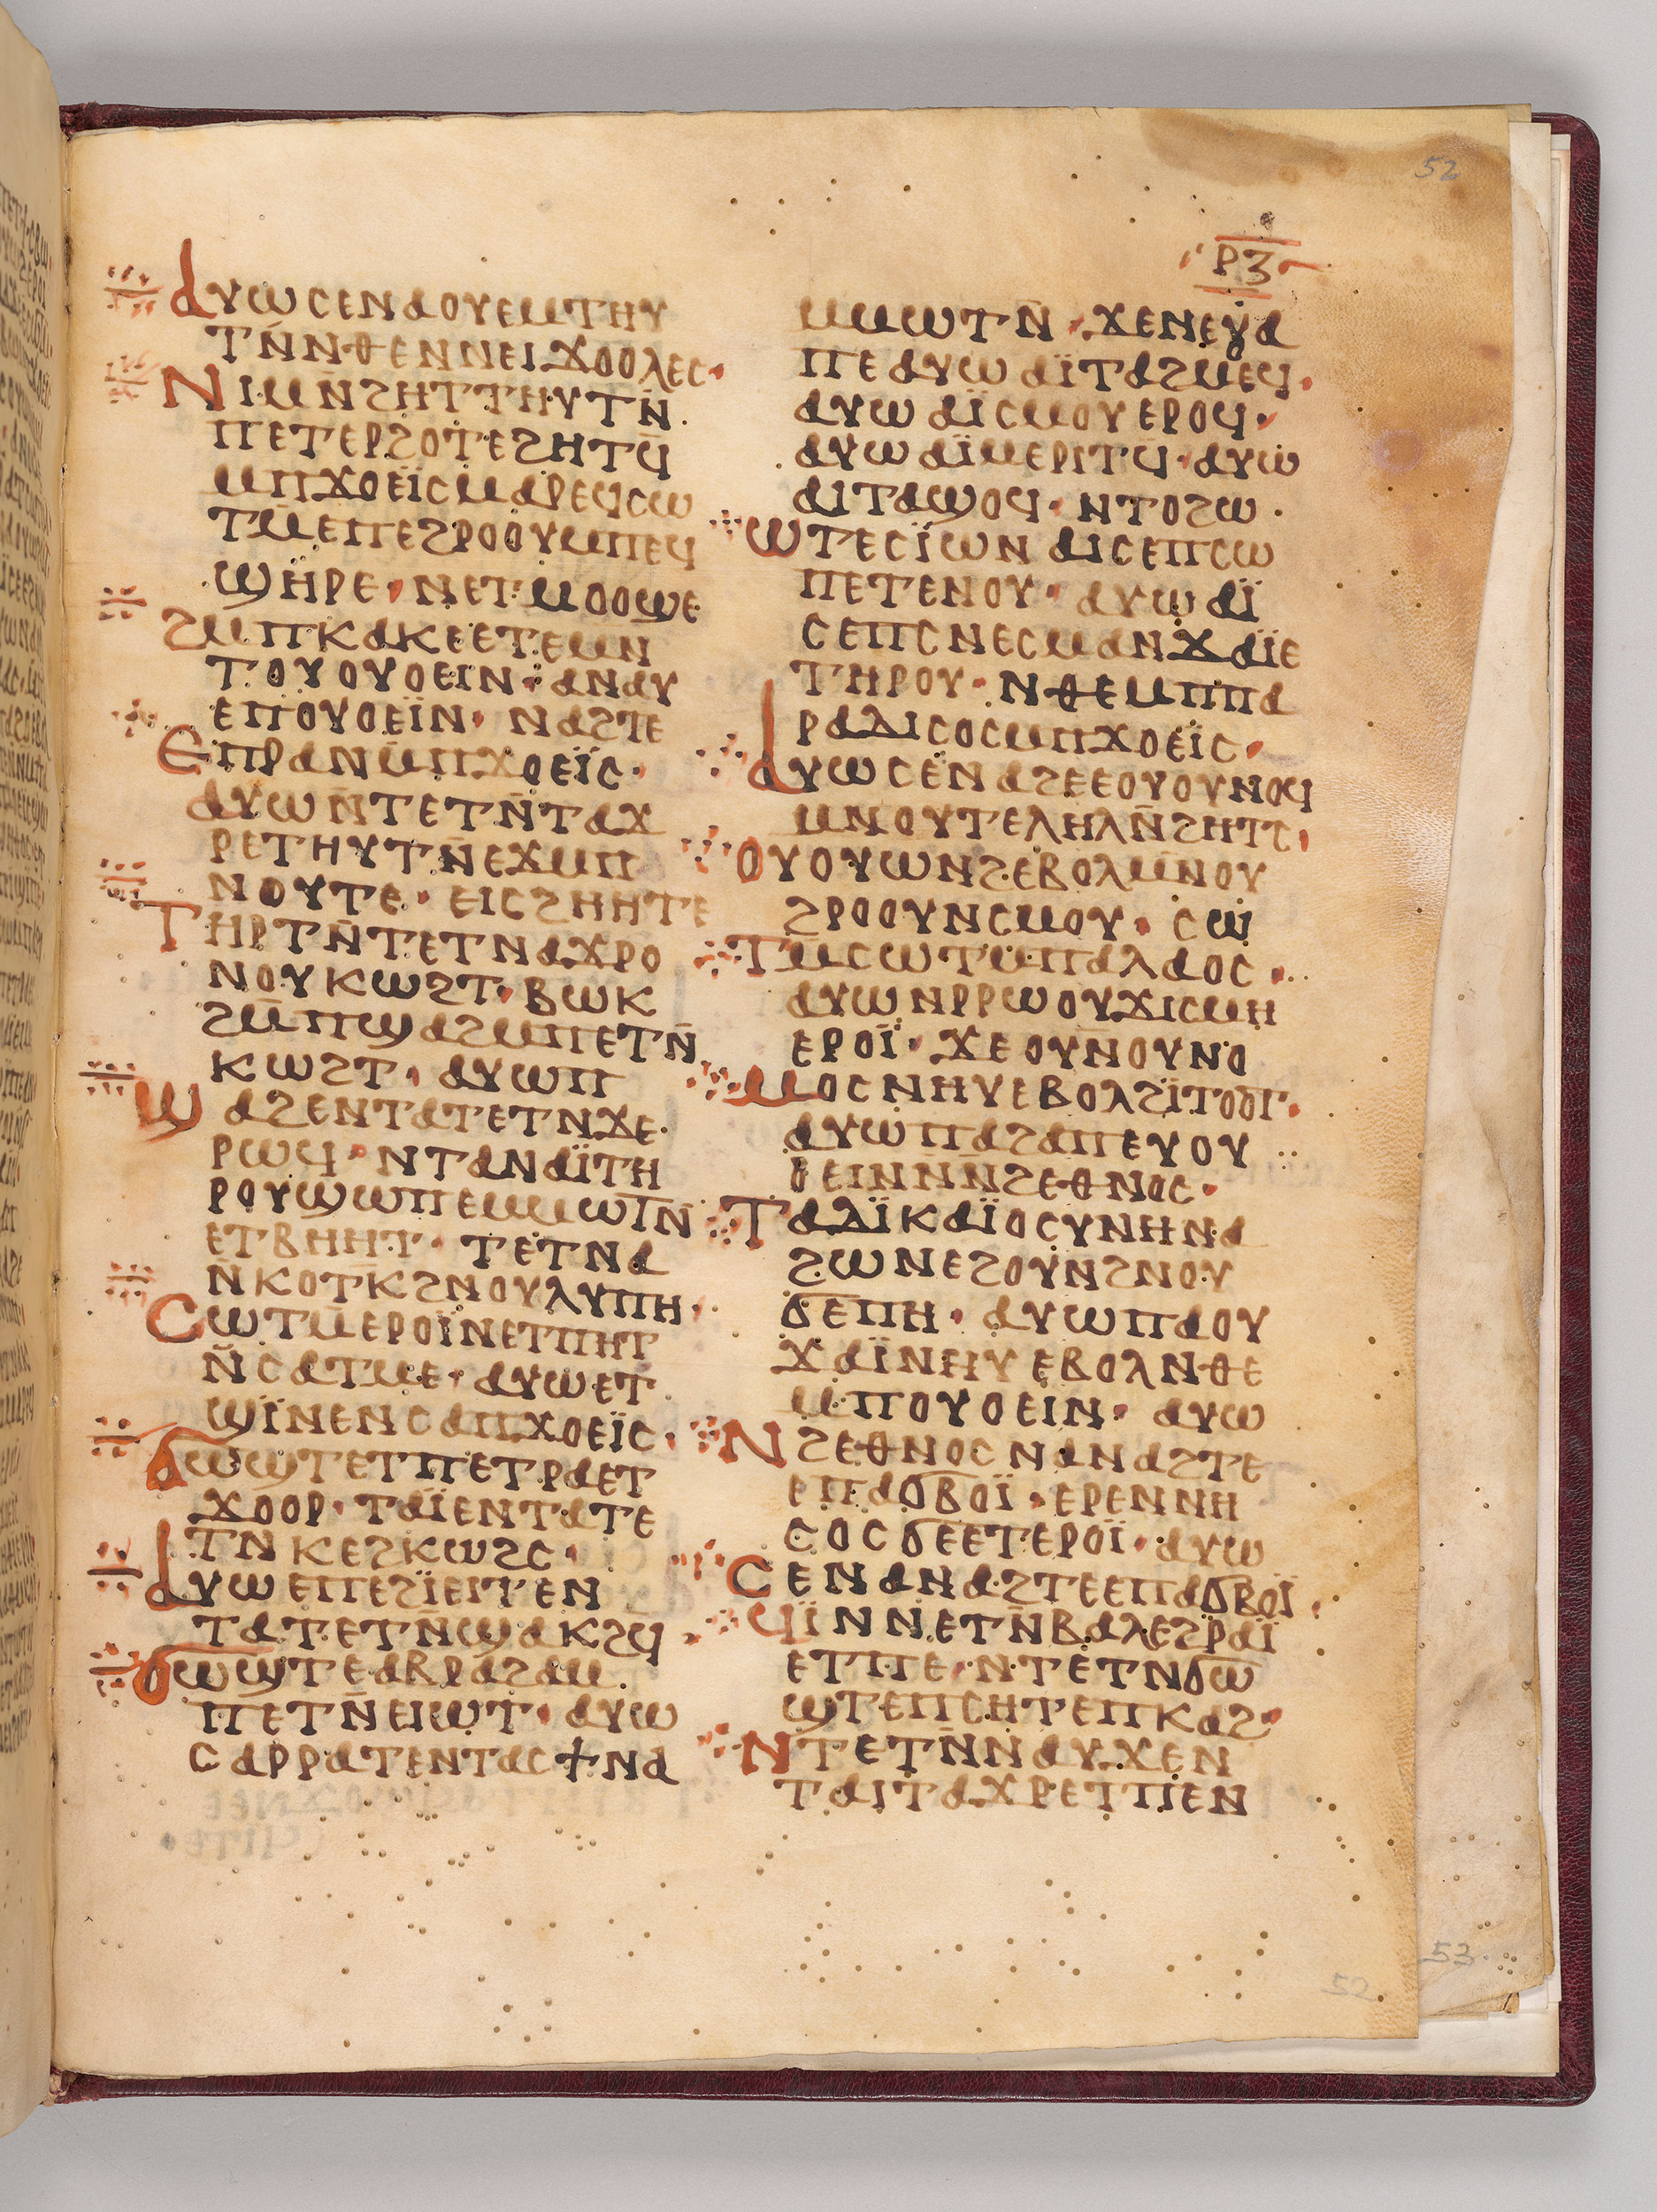 52
ⲣⲍ
ⲁⲩⲱ ⲥⲉⲛⲁⲟⲩⲉⲙⲧⲏⲩ
ⲧⲛ̄ ⲛⲑⲉ ⲛⲛⲉⲓϫⲟⲟⲗⲉⲥ·
ⲛⲓⲙ ⲛ̄ϩⲏⲧⲧⲏⲩⲧⲛ̄
ⲡⲉⲧⲉⲣϩⲟⲧⲉ ϩⲏⲧϥ̄
ⲙⲡϫⲟⲉⲓ̈ⲥ ⲙⲁⲣⲉϥⲥⲱ
ⲧⲙ̄ ⲉⲡⲉϩⲣⲟⲟⲩ ⲙⲡⲉϥ
ϣⲏⲣⲉ· ⲛⲉⲧⲙⲟⲟϣⲉ
ϩⲙⲡⲕⲁⲕⲉ ⲉⲧⲉⲙⲛ
ⲧⲟⲩⲟⲩⲟⲉⲓⲛ· ⲁⲛⲁⲩ
ⲉⲡⲟⲩⲟⲉⲓ̈ⲛ· ⲛⲁϩⲧⲉ
ⲉⲡⲣⲁⲛ ⲙ̄ⲡϫⲟⲉⲓ̈ⲥ·
ⲁⲩⲱ ⲛ̄ⲧⲉⲧⲛ̄ⲧⲁϫ
ⲣⲉⲧⲏⲩⲧⲛ̄ ⲉϫⲙⲡ
ⲛⲟⲩⲧⲉ· ⲉⲓⲥϩⲏⲏⲧⲉ
ⲧⲏⲣⲧⲛ̄ ⲧⲉⲧⲛⲁϫⲣⲟ
ⲛⲟⲩⲕⲱϩⲧ· ⲃⲱⲕ
ϩⲙ̄ⲡϣⲁϩ ⲙⲡⲉⲧⲛ̄
ⲕⲱϩⲧ· ⲁⲩⲱ ⲡ
ϣⲁϩ ⲉⲛⲧⲁⲧⲉⲧⲛϫⲉ
ⲣⲱϥ· ⲛⲧⲁⲛⲁⲓ̈ ⲧⲏ
ⲣⲟⲩ ϣⲱⲡⲉ ⲙⲙⲱⲧⲛ̄
ⲉⲧⲃⲏⲏⲧ· ⲧⲉⲧⲛⲁ
ⲛⲕⲟⲧⲕ ϩⲛⲟⲩⲗⲩⲡⲏ·
ⲥⲱⲧⲙ̄ ⲉⲣⲟⲓ̈ ⲛⲉⲧⲡⲏⲧ
ⲛ̄ⲥⲁⲧⲙⲉ· ⲁⲩⲱ ⲉⲧ
ϣⲓ̈ⲛⲉ ⲛⲥⲁⲡϫⲟⲉⲓ̈ⲥ·
ϭⲱϣⲧ ⲉⲧⲡⲉⲧⲣⲁ ⲉⲧ
ϫⲟⲟⲣ· ⲧⲁⲓ̈ ⲉⲛⲧⲁⲧⲉ
ⲧⲛⲕⲉϩⲕⲱϩⲥ·
ⲁⲩⲱ ⲉⲡⲉϩⲓ̈ⲉⲓⲧ ⲉⲛ
ⲧⲁⲧⲉⲧⲛ̄ϣⲁⲕϩϥ̄
ϭⲱϣⲧ ⲉⲁⲃⲣⲁϩⲁⲙ
ⲡⲉⲧⲛ̄ⲉⲓⲱⲧ· ⲁⲩⲱ
ⲥⲁⲣⲣⲁ ⲧⲉⲛⲧⲁⲥϯⲛⲁ
ⲙⲙⲱⲧⲛ̄· ϫⲉ ⲛⲉⲩⲁ
ⲡⲉ ⲁⲩⲱ ⲁⲓ̈ⲧⲁϩⲙⲉϥ·
ⲁⲩⲱ ⲁⲓⲥⲙⲟⲩ ⲉⲣⲟϥ·
ⲁⲩⲱ ⲁⲓ̈ⲙⲉⲣⲓⲧϥ̄· ⲁⲩⲱ
ⲁⲓⲧⲁϣⲟϥ· ⲛⲧⲟ ϩⲱ
ⲱⲧⲉ ⲥⲓ̈ⲱⲛ ⲁⲓⲥⲉⲡⲥⲱ
ⲡⲉ ⲧⲉⲛⲟⲩ· ⲁⲩⲱ ⲁⲓ̈
ⲥⲉⲡⲥ ⲛⲉⲥⲙⲁⲛϫⲁⲓ̈ⲉ
ⲧⲏⲣⲟⲩ· ⲛⲑⲉ ⲙⲡⲡⲁ
ⲣⲁⲇⲓⲥⲟⲥ ⲙⲡϫⲟⲉⲓ̈ⲥ·
ⲁⲩⲱ ⲥⲉⲛⲁϩⲉ ⲉⲟⲩⲟⲩⲛⲟϥ
ⲙⲛⲟⲩⲧⲉⲗⲏⲗ ⲛ̄ϩⲏⲧⲥ·
ⲟⲩⲟⲩⲱⲛϩ ⲉⲃⲟⲗ ⲙⲛ̄ⲟⲩ
ϩⲣⲟⲟⲩ ⲛⲥⲙⲟⲩ· ⲥⲱ
ⲧⲙ ⲥⲱⲧⲙ ⲡⲁⲗⲁⲟⲥ·
ⲁⲩⲱ ⲛⲣⲣⲱⲟⲩ ϫⲓⲥⲙⲏ
ⲉⲣⲟⲓ̈· ϫⲉ ⲟⲩⲛⲟⲩⲛⲟ
ⲙⲟⲥ ⲛⲏⲩ ⲉⲃⲟⲗ ϩⲓ̈ⲧⲟⲟⲧ·
ⲁⲩⲱ ⲡⲁϩⲁⲡ ⲉⲩⲟⲩ
ⲟⲉⲓⲛ ⲛ̄ⲛ̄ϩⲉⲑⲛⲟⲥ·
ⲧⲁⲇⲓ̈ⲕⲁⲓ̈ⲟⲥⲩⲛⲏ ⲛⲁ
ϩⲱⲛ ⲉϩⲟⲩⲛ ϩⲛⲟⲩ
ϭⲉⲡⲏ· ⲁⲩⲱ ⲡⲁⲟⲩ
ϫⲁⲓ̈ ⲛⲏⲩ ⲉⲃⲟⲗ ⲛⲑⲉ
ⲙⲡⲟⲩⲟⲉⲓⲛ· ⲁⲩⲱ
ⲛϩⲉⲑⲛⲟⲥ ⲛⲁⲛⲁϩⲧⲉ
ⲉⲡⲁϭⲃⲟⲓ̈· ⲉⲣⲉⲛⲛⲏ
ⲥⲟⲥ ϭⲉⲉⲧ ⲉⲣⲟⲓ̈· ⲁⲩⲱ
ⲥⲉⲛⲁⲛⲁϩⲧⲉ ⲉⲡⲁϭⲃⲟⲓ̈·
ϥⲓ̈ ⲛⲛⲉⲧⲛ̄ⲃⲁⲗ ⲉϩⲣⲁⲓ̈
ⲉⲧⲡⲉ· ⲛⲧⲉⲧⲛϭⲱ
ϣⲧ ⲉⲡⲥⲏⲧ ⲉⲡⲕⲁϩ·
ⲛⲧⲉⲧⲛ̄ⲛⲁⲩ ϫⲉ ⲛ
ⲧⲁⲓⲧⲁϫⲣⲉ ⲧⲡⲉ ⲛ
52
53